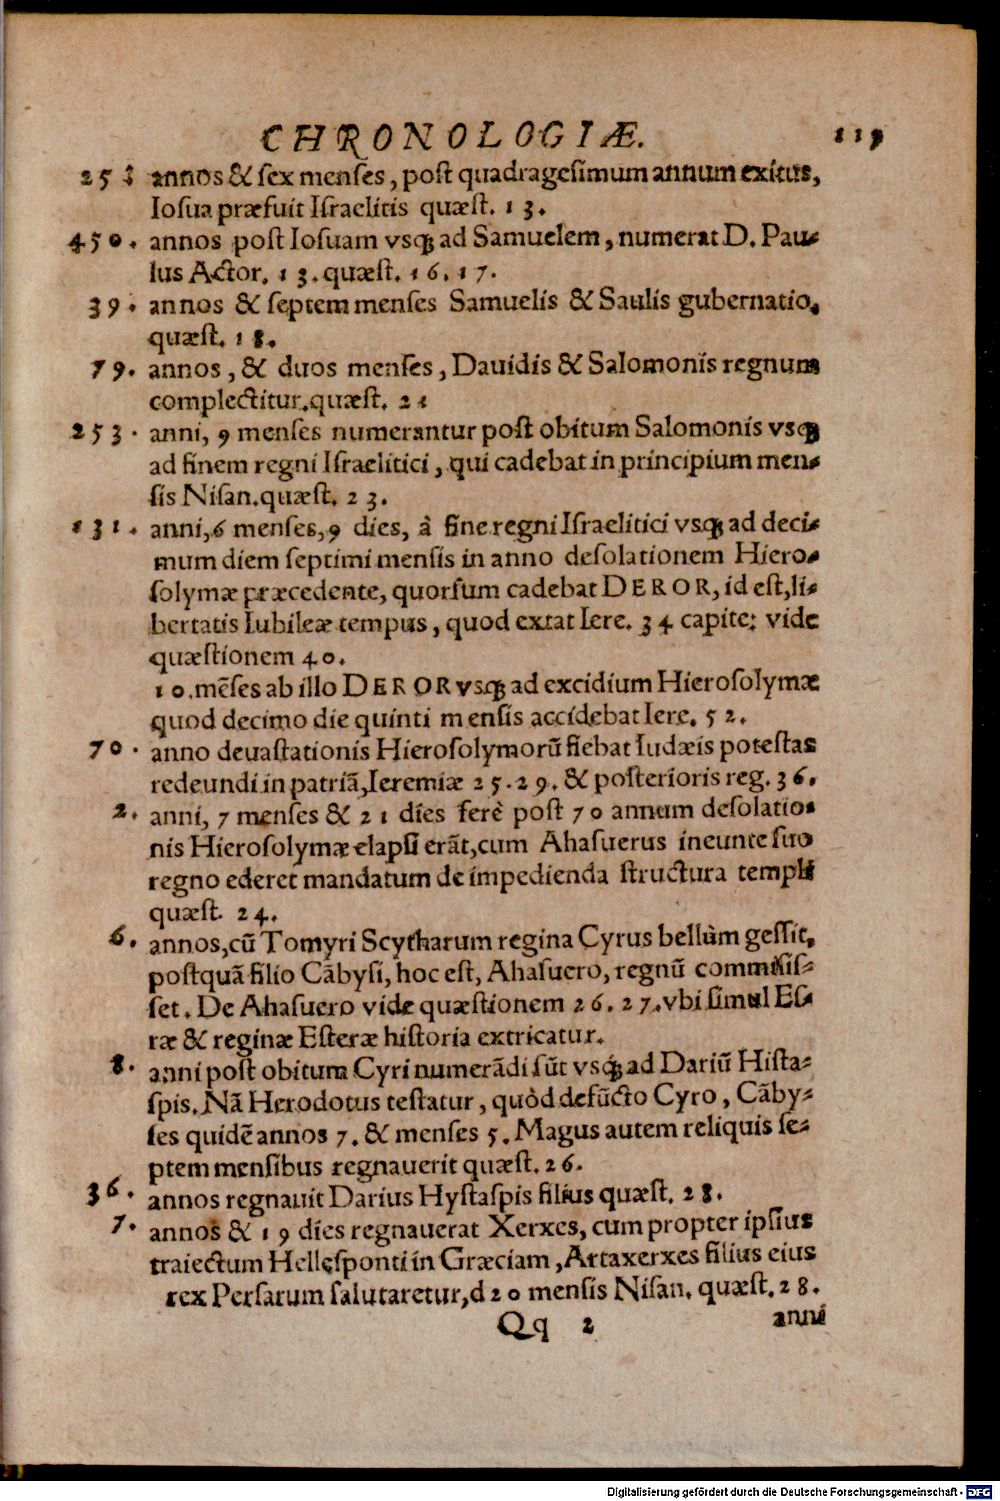 CHRONOLOGIÆ. 119
25 annos & sex menses, post quadragesimum annum exitus,
Iosua præfuit Israelitis quæst. 13.
450. annos post Iosuam vsq; ad Samuelem, numerat D. Pau-
lus Actor. 13. quæst. 16. 17.
39. annos & septem menses Samuelis & Saulis gubernatio.
quæst. 18.
79. annos, & duos menses, Dauidis & Salomonis regnum
complectitur. quæst. 21
253. anni, 9 menses numerantur post obitum Salomonis vsq;
ad finem regni Israelitici, qui cadebat in principium men-
sis Nisan. quæst. 23.
131. anni, 6 menses, 9 dies, à fine regni Israelitici vsq; ad deci-
mum diem septimi mensis in anno desolationem Hiero-
solymæ præcedente, quorsum cadebat DEROR, id est, li-
bertatis Iubileæ tempus, quod extat Iere. 34 capite: vide
quæstionem 40.
10. mẽses ab illo DEROR vsq; ad excidium Hierosolymæ
quod decimo die quinti mensis accidebat Iere. 52.
70. anno deuastationis Hierosolymorũ fiebat Iudæis potestas
redeundi in patriã, Ieremiæ 25. 29. & posterioris reg. 36.
2. anni, 7 menses & 21 dies ferè post 70 annum desolatio-
nis Hierosolymæ elapsi erãt, cum Ahasuerus ineunte suo
regno ederet mandatum de impedienda structura templi
quæst. 24.
6. annos, cũ Tomyri Scytharum regina Cyrus bellùm gessit,
postquã filio Cãbysi, hoc est, Ahasuero, regnũ commisis-
set. De Ahasuero vide quæstionem 26. 27. vbi simul Es-
ræ & reginæ Esteræ historia extricatur.
8. anni post obitum Cyri numerãdi sũt vsq; ad Dariũ Hista-
spis. Nã Herodotus testatur, quòd defũcto Cyro, Cãby-
ses quidẽ annos 7. & menses 5. Magus autem reliquis se-
ptem mensibus regnauerit quæst. 26.
36. annos regnauit Darius Hystaspis filius quæst. 28.
7. annos & 19 dies regnauerat Xerxes, cum propter ipsius
traiectum Hellesponti in Græciam, Artaxerxes filius eius
rex Persarum salutaretur, d 20 mensis Nisan. quæst. 28.
Qq 2 anni
Digitalisierung gefördert durch die Deutsche Forschungsgemeinschaft - DFG